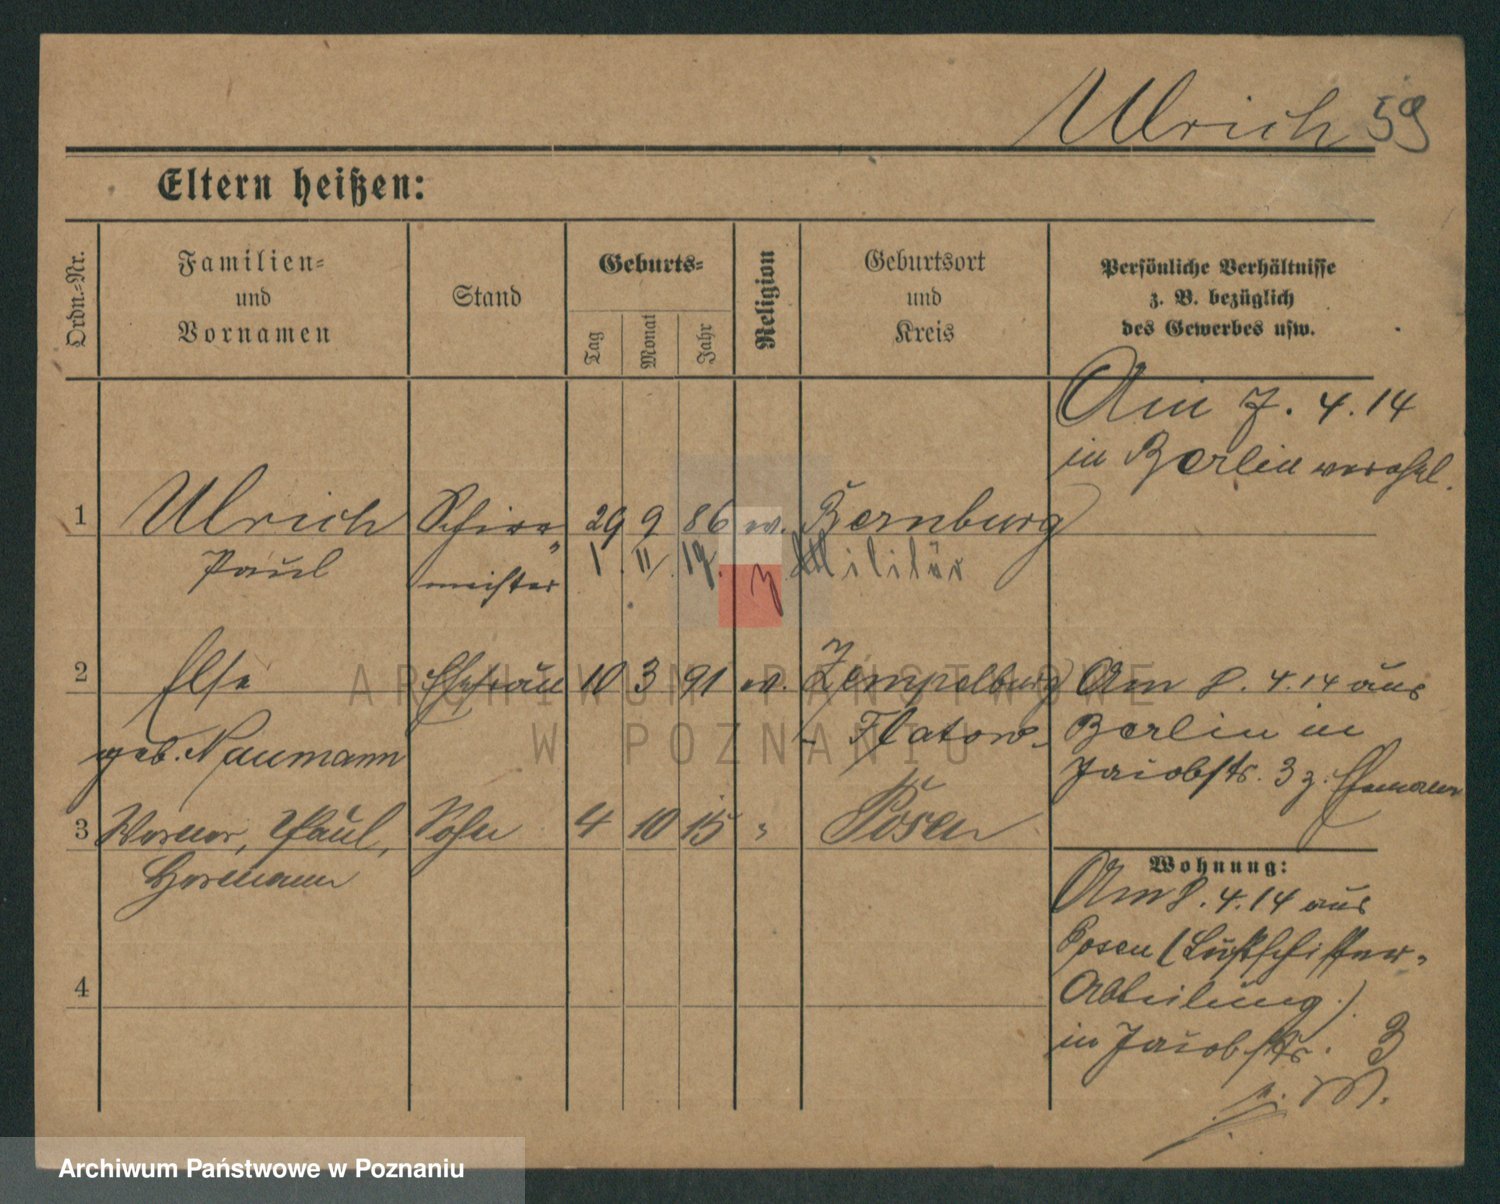 Ulrich 59
Eltern heißen:
Ordn.-Nr.
Familien-
und
Vornamen
Stand
Geburts-
Tag
Monat
Jahr
Religion
Geburtsort
und
Kreis
Persönliche Verhältnisse
z. B. bezüglich
des Gewerbes usw.
Am 7. 4. 14
in Berlin verehel.
1 Ulrich Schirr- 29 9 86 ev. Bernburg
Paul meister 1. 11. 19. z Militär
2 Else Ehefrau 10 3 91 ev. Zempelburg
geb. Naumann - Flatow -
Am 8. 4. 14 aus
Berlin in
Jakobstr. 3 z. Ehemann
3 Werner, Paul, Sohn 4 10 15 " Posen
Hermann
4
Wohnung:
Am 8. 4. 14 aus
Posen (Luftschiffer-
Abteilung)
in Jakobstr. 3
b. M.
ARCHIWUM PAŃSTWOWE
W POZNANIU
Archiwum Państwowe w Poznaniu